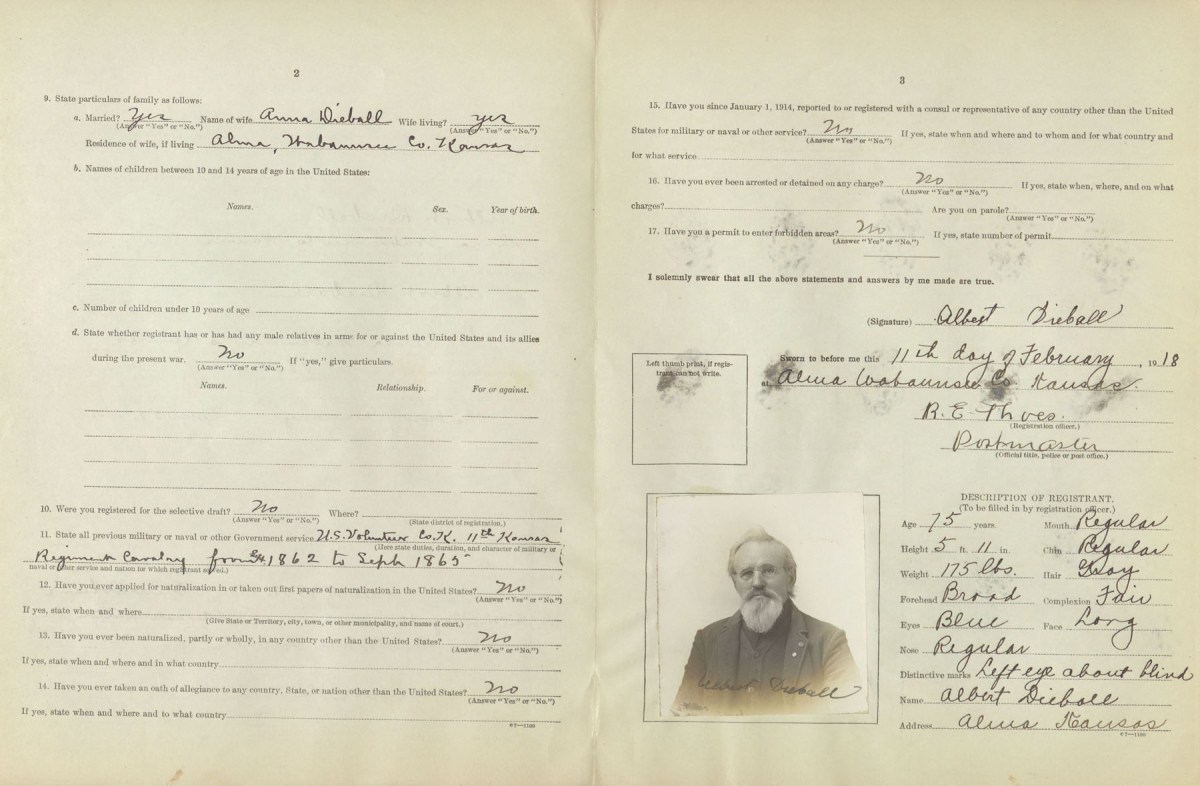 2
9. State particulars of family as follows:
a. Married? Yes Name of wife Anna Dieball Wife living? yes
(Answer "Yes" or "No.") (Answer "Yes" or "No.")
Residence of wife, if living Alma, Wabaunsee Co. Kansas
b. Names of children between 10 and 14 years of age in the United States:
Names. Sex. Year of birth.
c. Number of children under 10 years of age
d. State whether registrant has or has had any male relatives in arms for or against the United States and its allies
during the present war. No If "yes," give particulars.
(Answer "Yes" or "No.")
Names. Relationship. For or against.
10. Were you registered for the selective draft? No Where?
(Answer "Yes" or "No.") (State district of registration.)
11. State all previous military or naval or other Government service U.S. Volunteer Co. K. 11th Kansas
(Here state duties, duration, and character of military or
Regiment Cavalry from 1862 to Sept 1865
naval or other service and nation for which registrant served.)
12. Have you ever applied for naturalization in or taken out first papers of naturalization in the United States? No
(Answer "Yes" or "No.")
If yes, state when and where
(Give State or Territory, city, town, or other municipality, and name of court.)
13. Have you ever been naturalized, partly or wholly, in any country other than the United States? No
(Answer "Yes" or "No.")
If yes, state when and where and in what country
14. Have you ever taken an oath of allegiance to any country, State, or nation other than the United States? No
(Answer "Yes" or "No.")
If yes, state when and where and to what country
6 7—1100
3
15. Have you since January 1, 1914, reported to or registered with a consul or representative of any country other than the United
States for military or naval or other service? No If yes, state when and where and to whom and for what country and
(Answer "Yes" or "No.")
for what service
16. Have you ever been arrested or detained on any charge? No If yes, state when, where, and on what
(Answer "Yes" or "No.")
charges? Are you on parole?
(Answer "Yes" or "No.")
17. Have you a permit to enter forbidden areas? No If yes, state number of permit
(Answer "Yes" or "No.")
I solemnly swear that all the above statements and answers by me made are true.
(Signature) Albert Dieball
Left thumb print, if regis-
trant can not write.
Sworn to before me this 11th day of February, 1918
at Alma Wabaunsee Co Kansas.
R. E. Thoes.
(Registration officer.)
Postmaster
(Official title, police or post office.)
Albert Dieball
DESCRIPTION OF REGISTRANT.
(To be filled in by registration officer.)
Age 75 years. Mouth Regular
Height 5 ft. 11 in. Chin Regular
Weight 175 lbs. Hair Gray
Forehead Broad Complexion Fair
Eyes Blue Face Long
Nose Regular
Distinctive marks Left eye about blind
Name Albert Dieball
Address Alma Kansas
6 7—1100